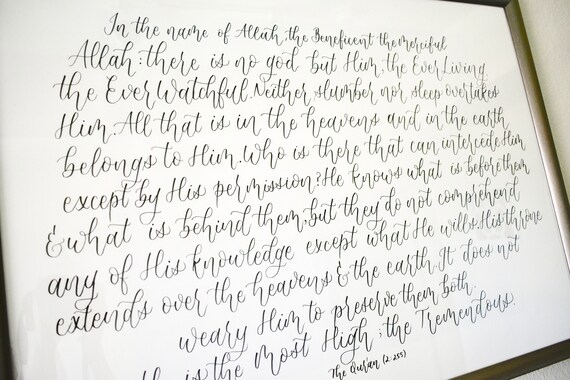 In the name of Allah, the Beneficent the merciful
Allah: there is no god but Him, the Ever Living,
the Ever Watchful. Neither slumber nor sleep overtakes
Him. All that is in the heavens and in the earth
belongs to Him. Who is there that can intercede Him
except by His permission? He knows what is before them
& what is behind them, but they do not comprehend
any of His knowledge except what He wills. His throne
extends over the heavens & the earth. It does not
weary Him to preserve them both.
He is the most High, the Tremendous.
The Qur'an (2:255)